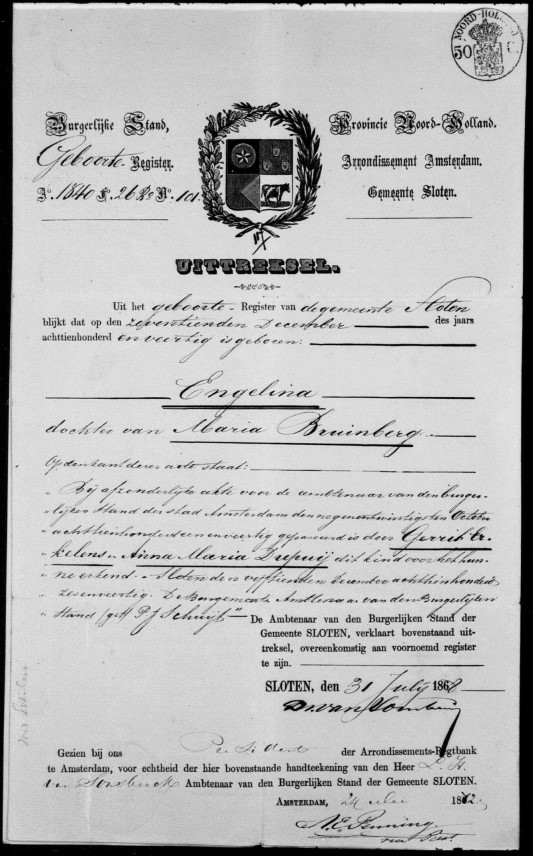 NOORD-HOLLAND
50 C
Burgerlijke Stand,
Geboorte Register.
Ao. 1840 F. 26 Rs No. 101.
Provincie Noord-Holland.
Arrondissement Amsterdam.
Gemeente Sloten.
UITTREKSEL.
Uit het geboorte - Register van de gemeente Sloten
blijkt dat op den zeventienden December des jaars
achttienhonderd en veertig is geboren:
Engelina
dochter van Maria Bruinberg
Op den kant dezer acte staat:
„ Bij afzonderlijke akte voor de ambtenaar van den burger-
„ lijken Stand der stad Amsterdam den negenentwintigsten October
„ achttienhonderd een en veertig gepasseerd is door Gerrit Er-
„ kelens en Anna Maria Dupuij dit kind voor het hun-
„ ne erkend. - Sloten den vijftienden december achttienhonderd
„ zesenveertig. De Burgemeester Ambtenaar van den Burgerlijken
„ Stand (get) P. J. Schuijt"
De Ambtenaar van den Burgerlijken Stand der
Gemeente SLOTEN, verklaart bovenstaand uit-
treksel, overeenkomstig aan voornoemd register
te zijn.
SLOTEN, den 31 July 1868
Gezien bij ons President der Arrondissements-Regtbank
te Amsterdam, voor echtheid der hier bovenstaande handteekening van den Heer
van Ambtenaar van den Burgerlijken Stand der Gemeente SLOTEN.
AMSTERDAM, 24
Penning